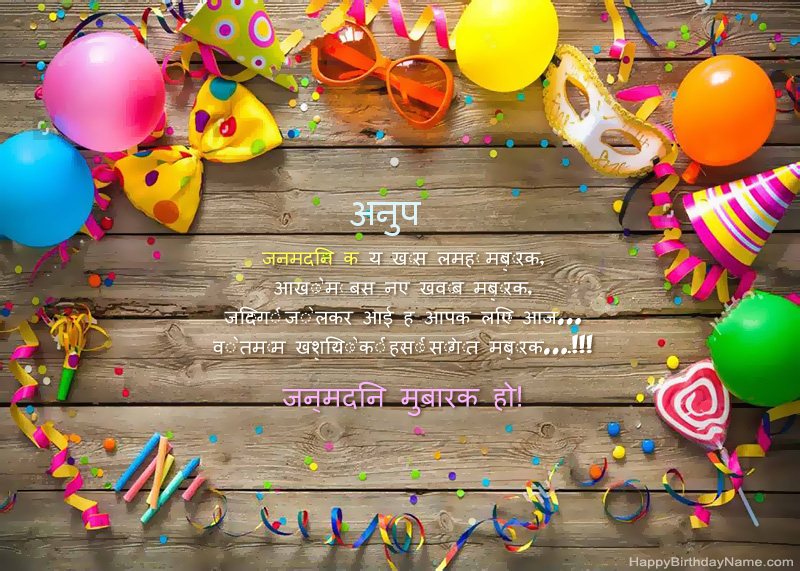 अनुप
जनमदनि क य खास लमहा मबारक,
आखों में बस नए खवाब मबारक,
जदिगी जो लेकर आई ह आपक लएि आज...
वो तमाम खशयिों की हसीं सौगात मबारक...!!!
जन्मदनि मुबारक हो!
HappyBirthdayName.com